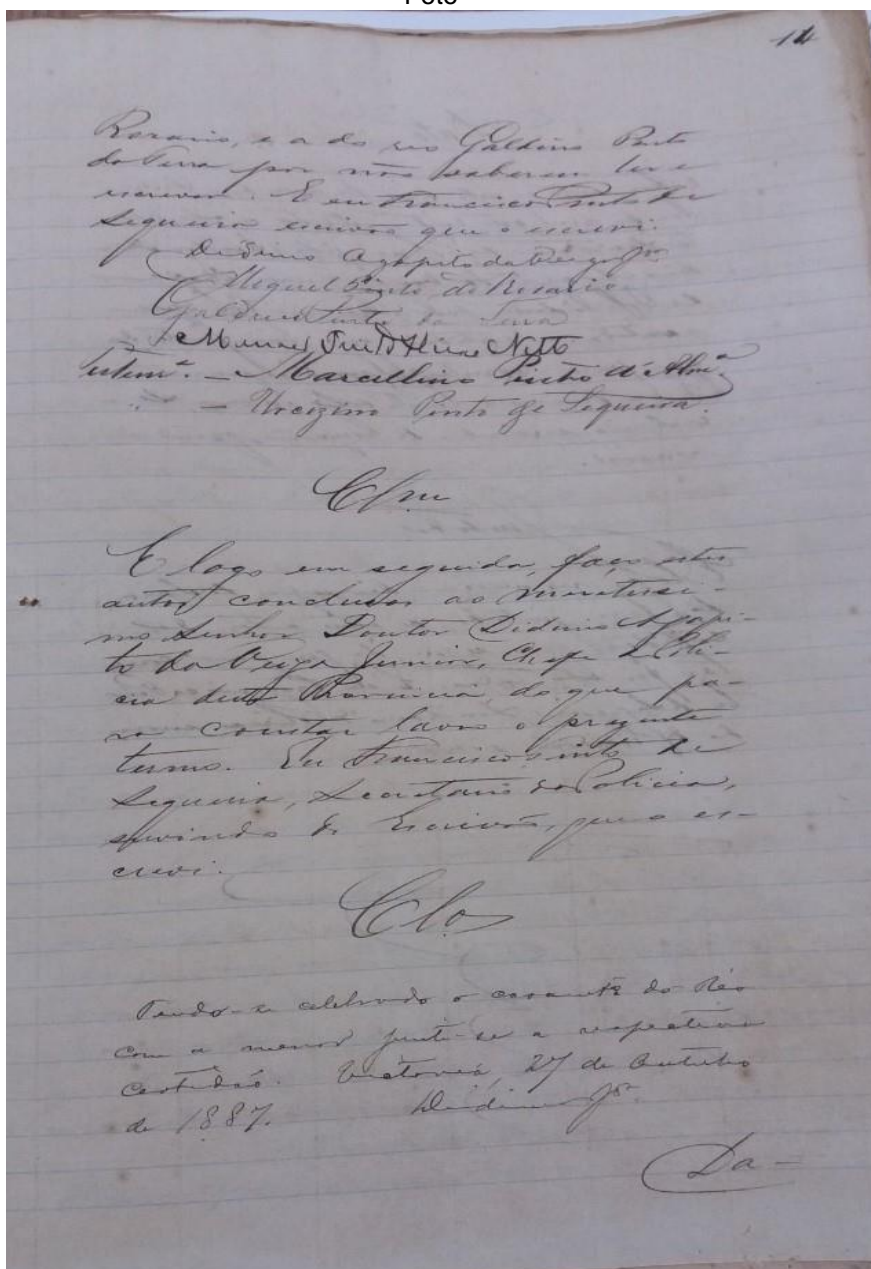 14
Rosario, e a do reo Galdino Pinto
da Serra por não saberem ler e
escrever. E eu Francisco Pinto de
Siqueira escrivão que o escrevi.
Didimo Agapito da Veiga Jor
Miguel Pinto do Rosario
Galdino Pinto da Serra
Manoel Netto
Testema. - Marcellino Pinto d'Alma.
" - Urcezino Pinto de Siqueira.
Clm
E logo em seguida, faço estes
autos conclusos ao meritissi-
mo Senhor Doutor Didimo Agapi-
to da Veiga Junior, Chefe de Poli-
cia desta Provincia do que pa-
ra constar lavro o prezente
termo. Eu Francisco Pinto de
Siqueira, Secretario da Policia,
servindo de Escrivão, que o es-
crevi.
Clos
Tendo-se celebrado o casamto do Réo
com a menor junte-se a respectiva
certidão. Victoria, 27 de Outubro
de 1887. Didimo Jor
Da-